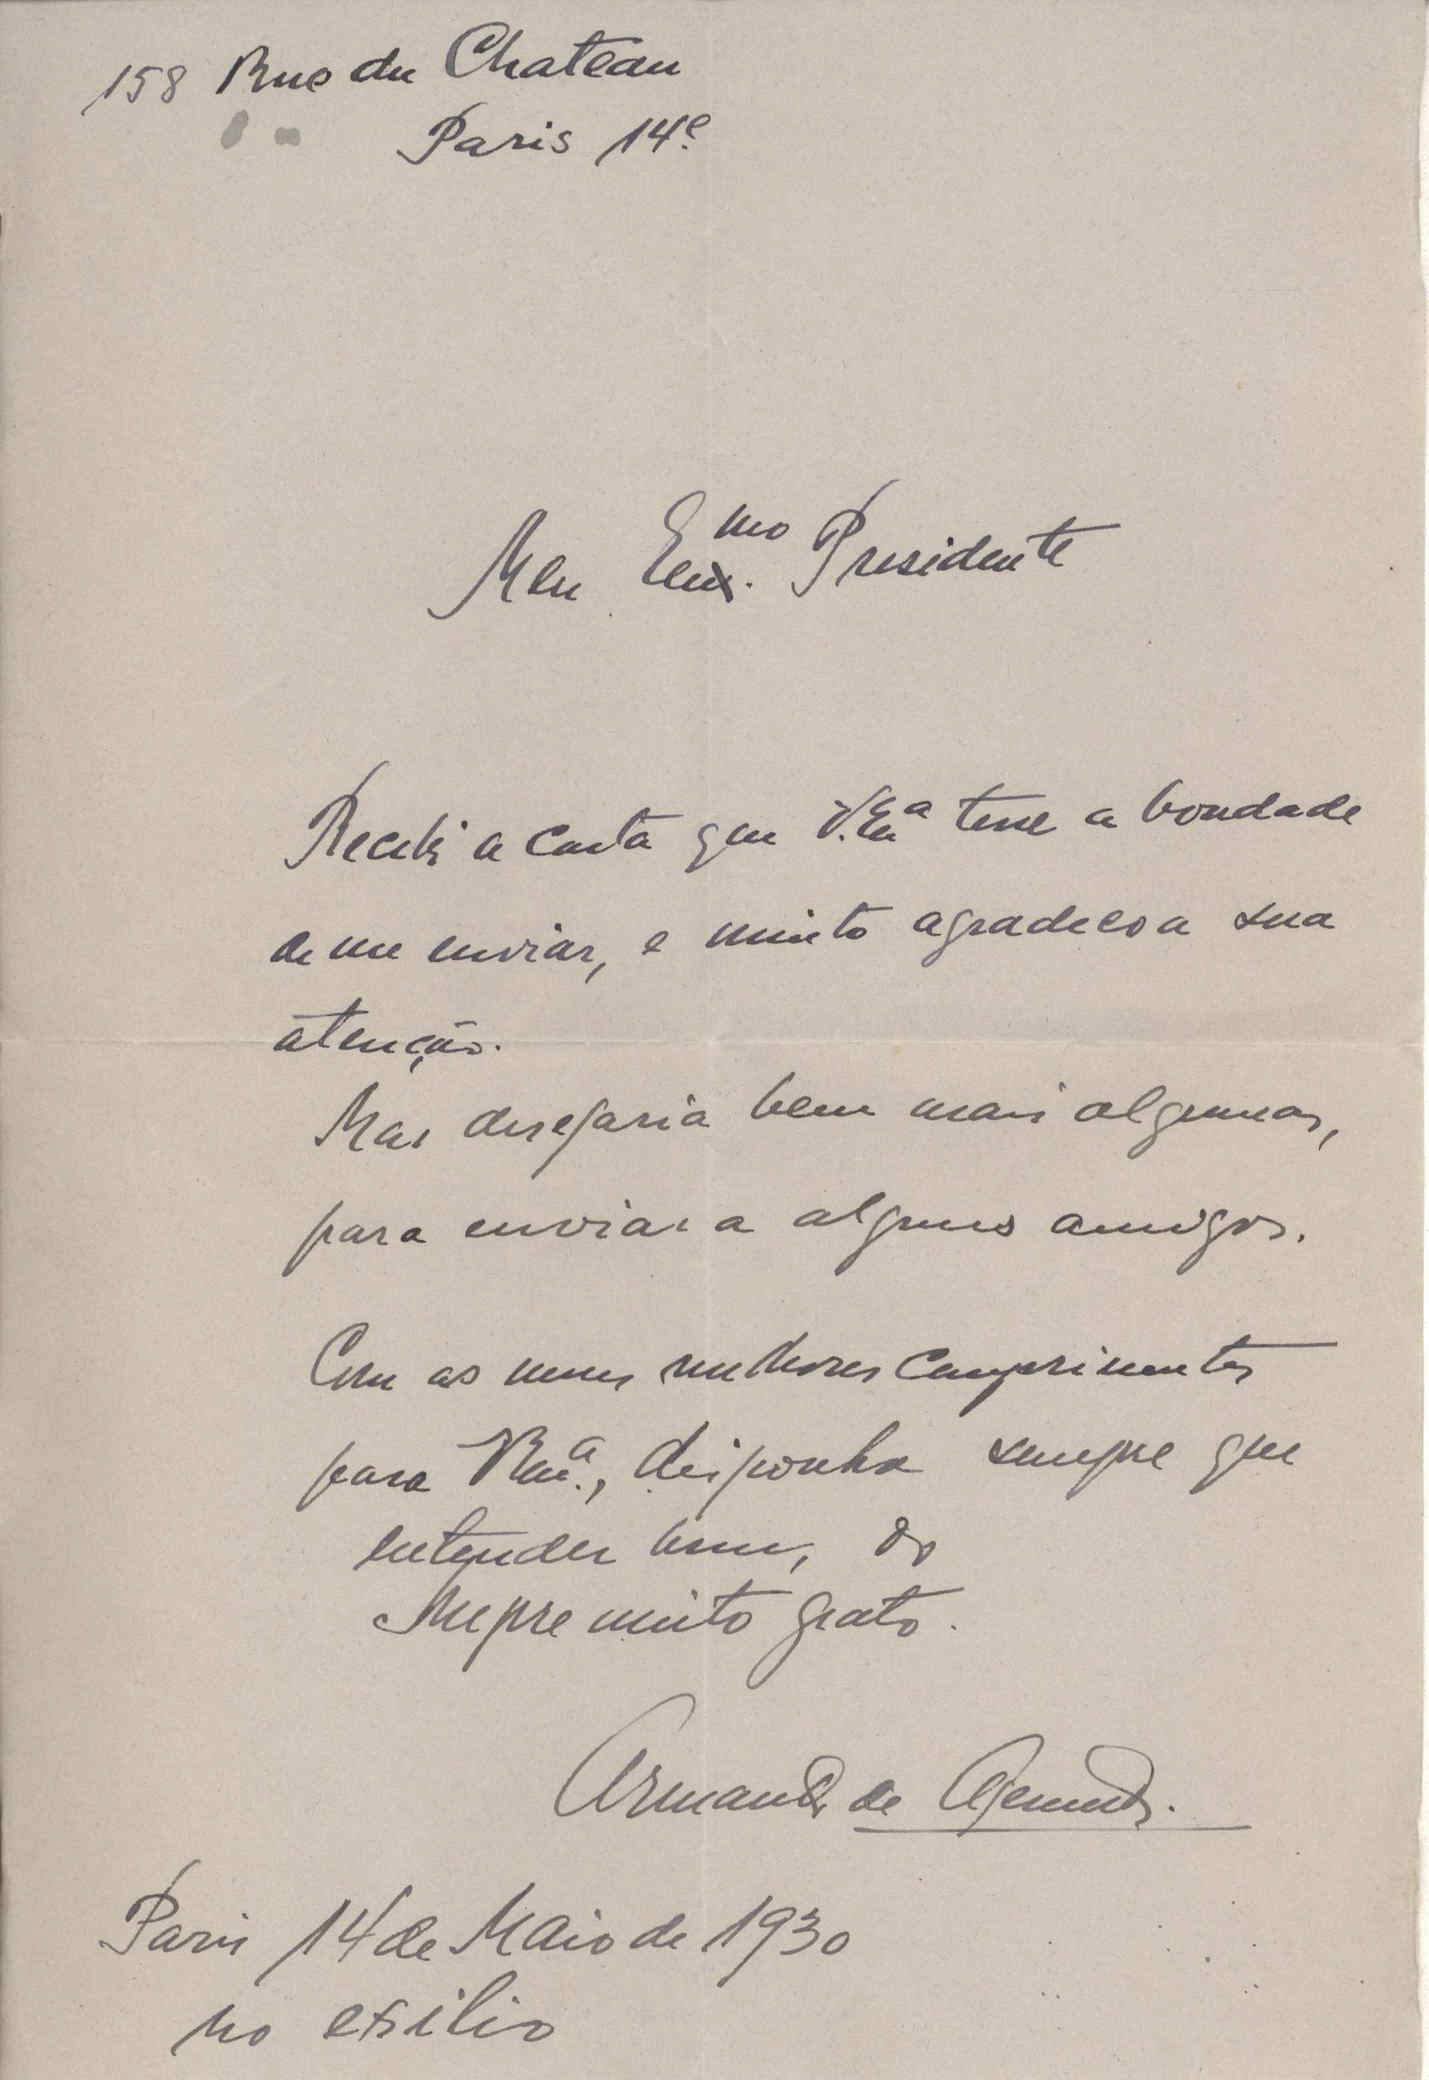 158 Rue du Chateau
Paris 14e
Meu Exmo. Presidente
Recebi a carta que V. Exa teve a bondade
de me enviar, e muito agradeco a sua
atenção.
Mas desejaria bem mais algumas,
para enviar a alguns amigos.
Com os meus melhores cumprimentos
para V. Exa., disponha sempre que
entender bem, do
sempre muito grato.
Armando de
Paris 14 de Maio de 1930
no exilio